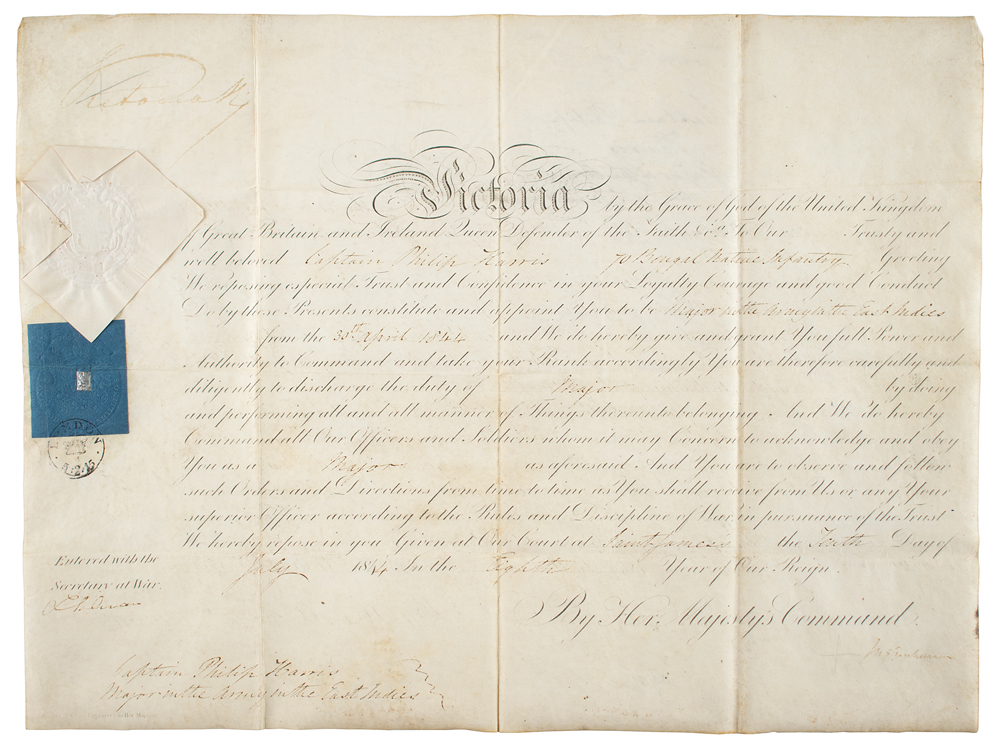 Victoria R
Victoria by the Grace of God of the United Kingdom
of Great Britain and Ireland Queen Defender of the Faith &c. To Our Trusty and
well beloved Captain Philip Harris 70 Bengal Native Infantry Greeting
We reposing especial Trust and Confidence in your Loyalty Courage and good Conduct
Do by these Presents constitute and appoint You to be Major in the Army in the East Indies
from the 30th April 1844 and We do hereby give and grant You full Power and
Authority to Command and take your Rank accordingly You are therefore carefully and
diligently to discharge the duty of Major by doing
and performing all and all manner of Things thereunto belonging. And We do hereby
Command all Our Officers and Soldiers whom it may Concern to acknowledge and obey
You as a Major as aforesaid And You are to observe and follow
such Orders and Directions from time to time as You shall receive from Us or any Your
superior Officer according to the Rules and Discipline of War in pursuance of the Trust
We hereby repose in you Given at Our Court at Saint James's the Tenth Day of
July 1844 In the Eighth Year of Our Reign.
By Her Majesty's Command.
LONDON
5.2.45
Entered with the
Secretary at War.
Captain Philip Harris
Major in the Army in the East Indies